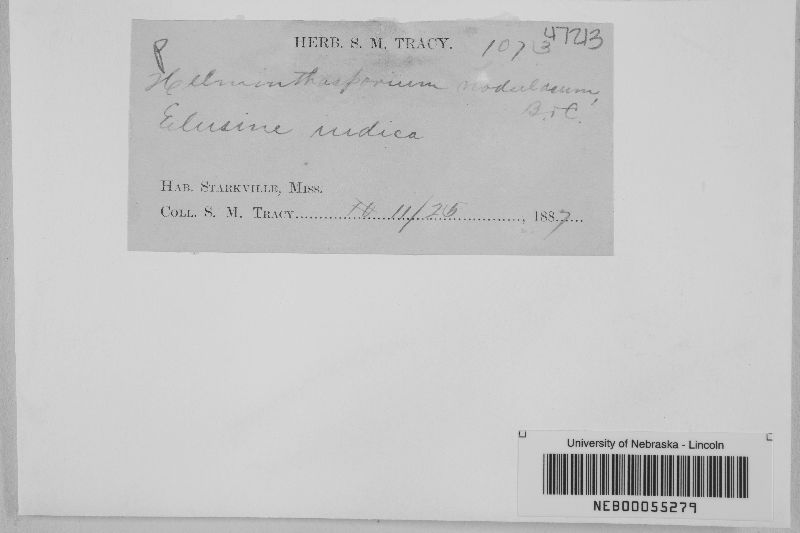 HERB. S. M. TRACY. 1073 47213
P
Helminthosporium nodulosum,
B. & C.
Elusine indica
HAB. STARKVILLE, MISS.
COLL. S. M. TRACY 11/25, 1887
University of Nebraska - Lincoln
NEB00055279